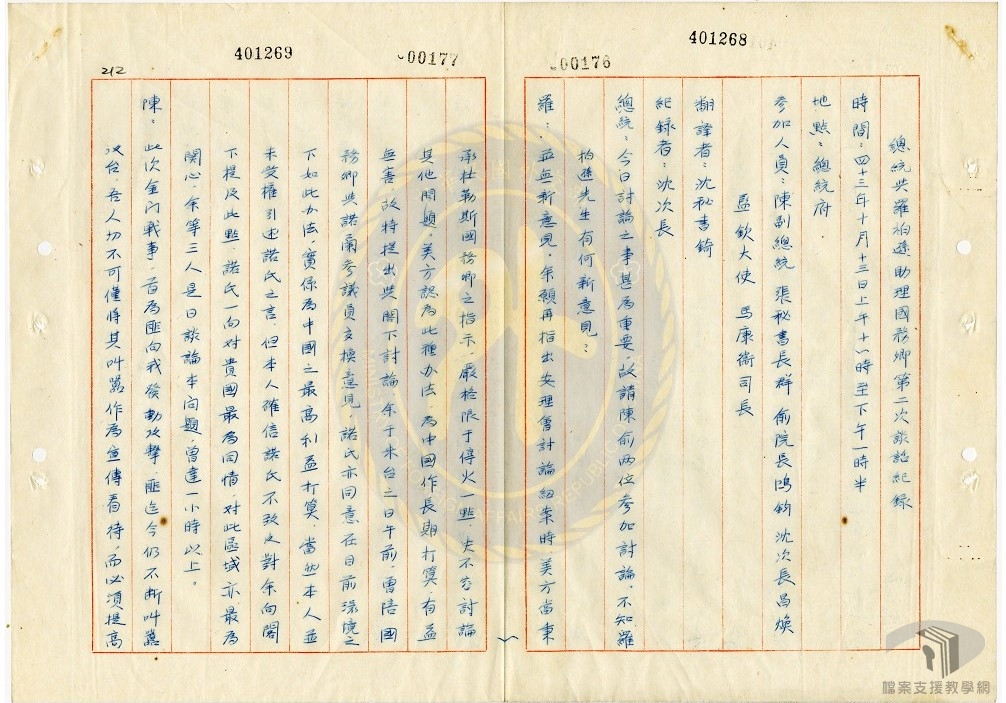 401268
00176
總統與羅柏遜助理國務卿第二次談話紀錄
時間：四十三年十月十三日上午十一時至下午一時半
地點：總統府
參加人員：陳副總統 張秘書長群 俞院長鴻鈞 沈次長昌煥
藍欽大使 馬康衛司長
翻譯者：沈秘書錡
紀錄者：沈次長
總統：今日討論之事甚為重要，故請陳俞兩位參加討論，不知羅
柏遜先生有何新意見？
羅：並無新意見，余願再指出安理會討論紐案時，美方當秉
401269
00177
212
承杜勒斯國務卿之指示，嚴格限于停火一點，決不容討論
其他問題，美方認為此種辦法，為中國作長期打算，有益
無害，故特提出與閣下討論，余于來台之日午前，曾陪國
務卿與諾蘭參議員交換意見，諾氏亦同意在目前環境之
下如此辦法，實係為中國之最高利益打算，當然本人並
未受權引述諾氏之言，但本人確信諾氏不致反對余向閣
下提及此點，諾氏一向對貴國最為同情，對此區域亦最為
關心，余等三人是日談論本問題，曾達一小時以上。
陳：此次金門戰事，首為匪向我發動攻擊，匪迄今仍不斷叫囂
攻台，吾人切不可僅將其叫囂作為宣傳看待，而必須提高
檔案支援教學網